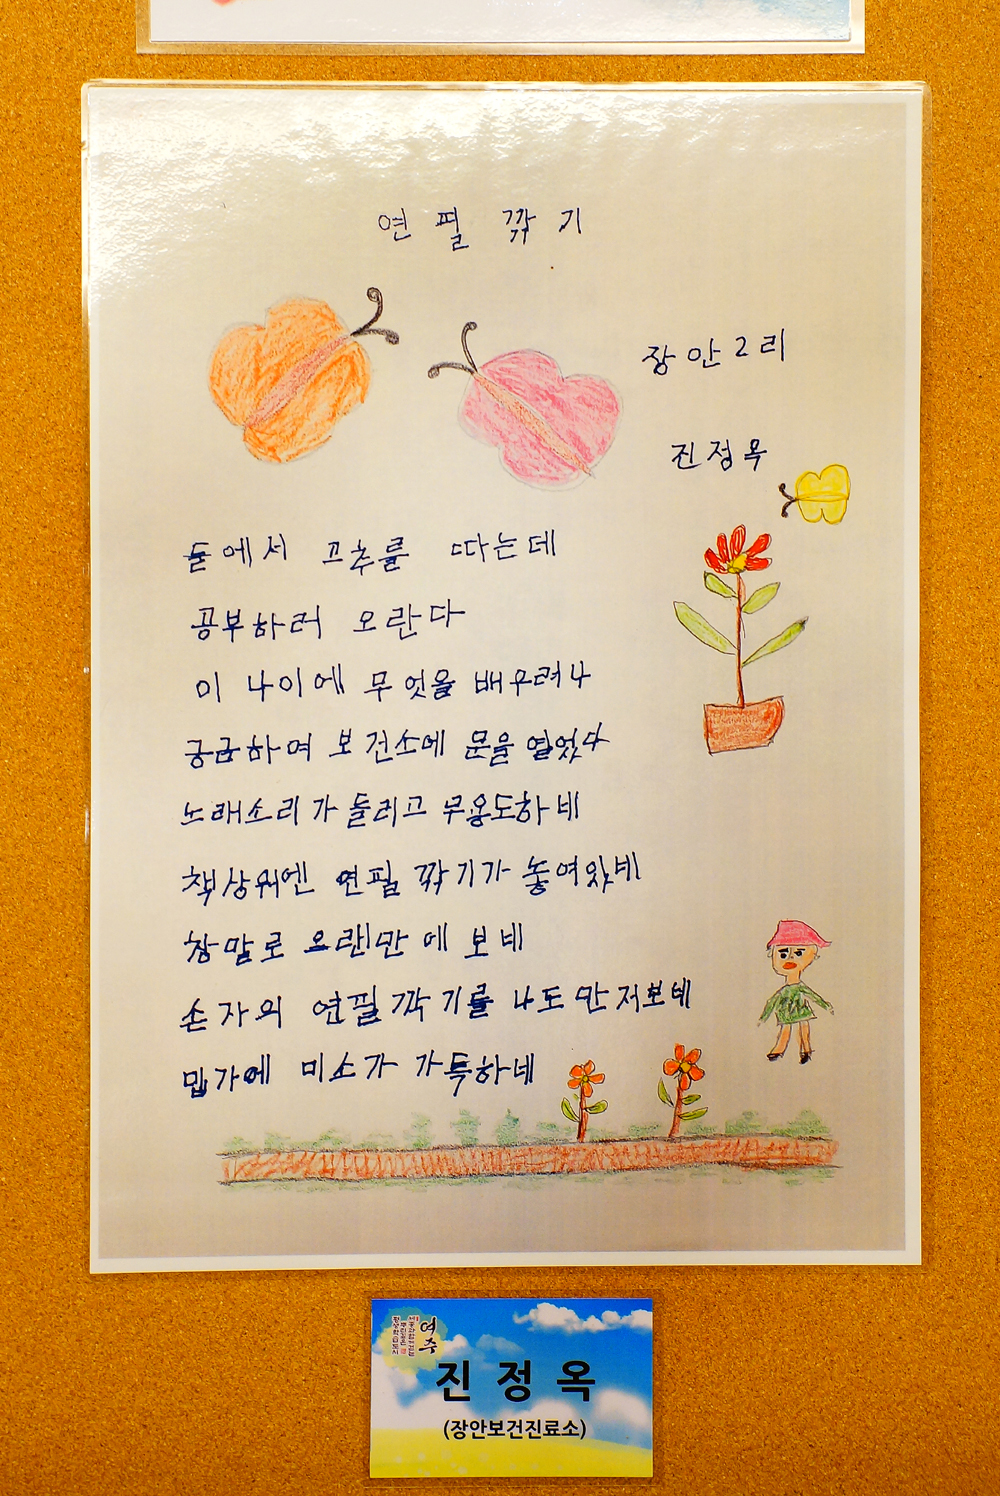 연필 깎기
장안2리
진정옥
들에서 고추를 따는데
공부하러 오란다
이 나이에 무엇을 배우려나
궁금하여 보건소에 문을 열었다
노래소리가 들리고 무용도하네
책상위엔 연필 깎기가 놓여있네
참말로 오랜만에 보네
손자의 연필깎기를 나도 만저보네
입가에 미소가 가득하네
여주
진정옥
(장안보건진료소)